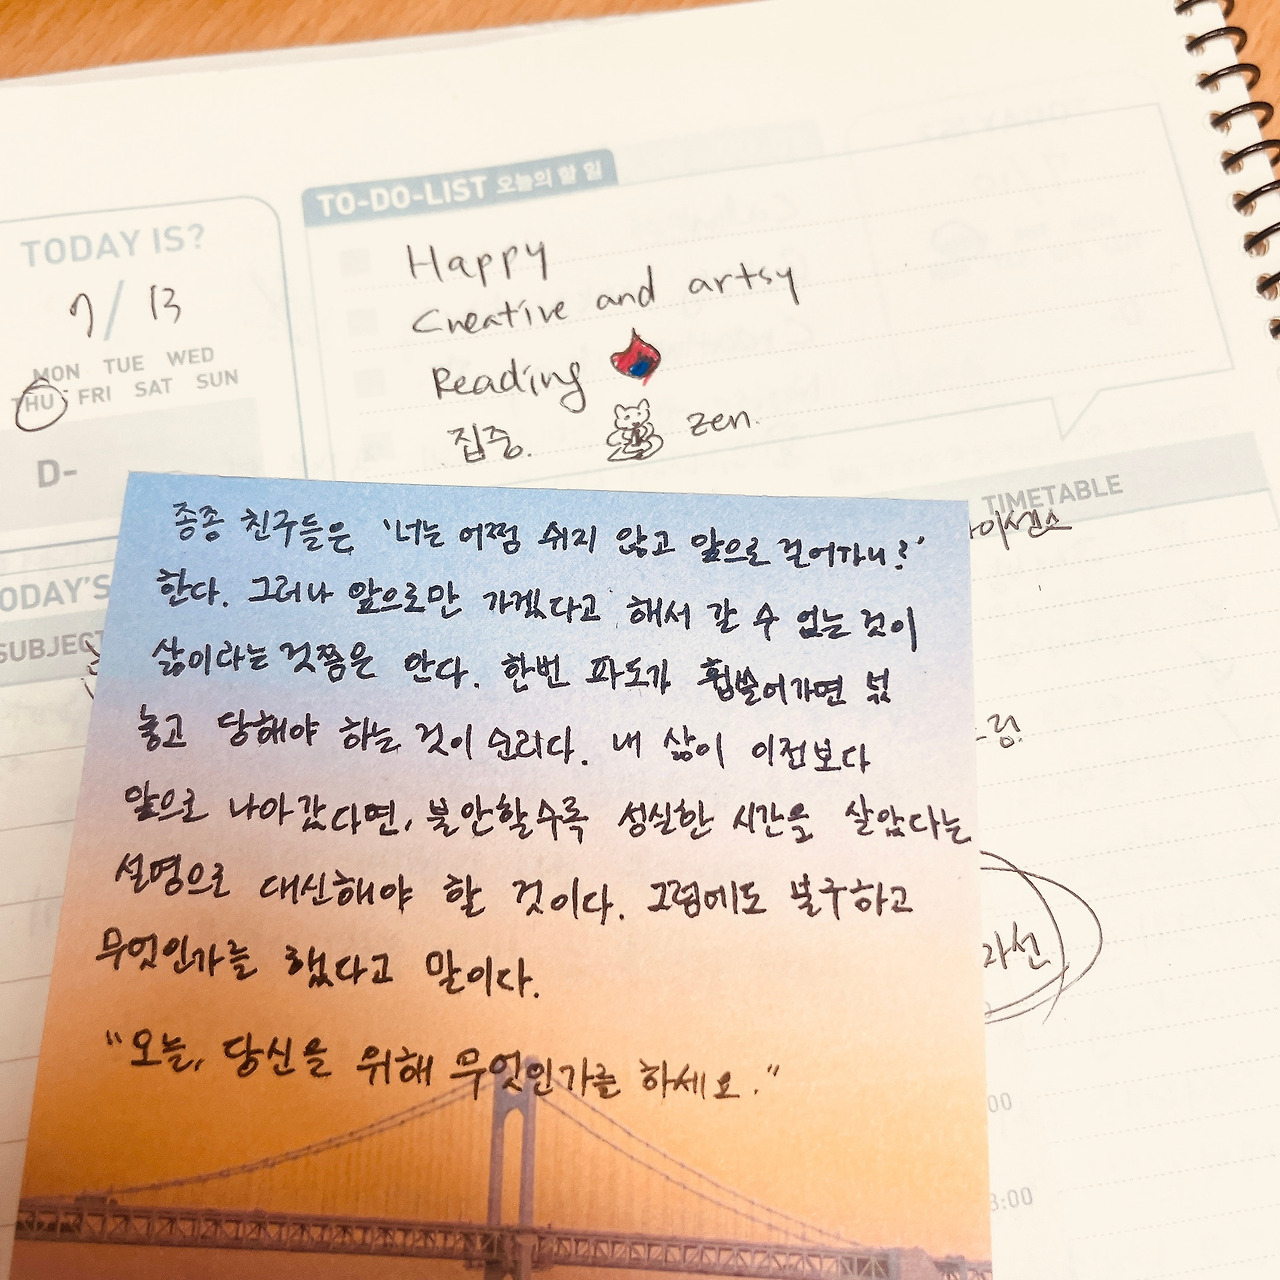 TO-DO-LIST 오늘의 할 일
TODAY IS?
7/13
MON TUE WED
THU FRI SAT SUN
D-
Happy
Creative and artsy
Reading
집중. zen.
TIMETABLE
종종 친구들은 '너는 어쩜 쉬지 않고 앞으로 걸어가니?'
한다. 그러나 앞으로만 가겠다고 해서 갈 수 없는 것이
삶이라는 것쯤은 안다. 한번 파도가 휩쓸어가면 넋
놓고 당해야 하는 것이 순리다. 내 삶이 이전보다
앞으로 나아갔다면, 불안할수록 성실한 시간을 살았다는
설명으로 대신해야 할 것이다. 그럼에도 불구하고
무엇인가를 했다고 말이다.
"오늘, 당신을 위해 무엇인가를 하세요."
TODAY'S
SUBJECT
이센스
:00